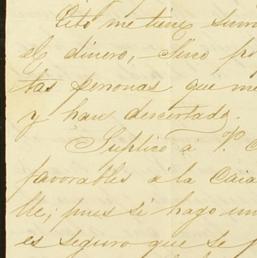 Esto me tiene sum
el dinero, sino po
tas personas que me
y han desertado.
Suplico á V. C
favorables á la Caia
lle; pues si hago un
es seguro que se p